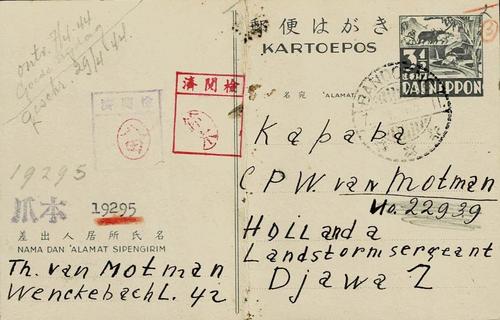 ontv. 7/4.44
29/4 '44.
郵便はがき
KARTOEPOS
3½
DAI NIPPON
名宛 'ALAMAT
BANDOENG
濟閲檢
濟閲檢
Kapada
C P W. van Motman
No. 22939
HOLLanda
Landstormsergeant
Djawa 2
19295
爪本 19295
差出人居所氏名
NAMA DAN 'ALAMAT SIPENGIRIM
Th. van Motman
Wenckebach L. 42